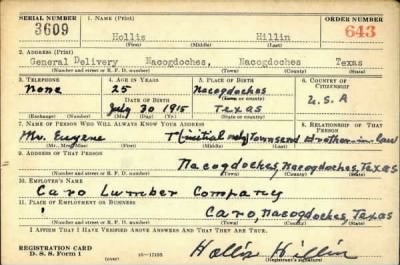 SERIAL NUMBER 1. NAME (Print) ORDER NUMBER
3609 Hollis Hillin 643
(First) (Middle) (Last)
2. ADDRESS (Print)
General Delivery Nacogdoches, Nacogdoches Texas
(Number and street or R. F. D. number) (Town) (County) (State)
3. TELEPHONE 4. AGE IN YEARS 5. PLACE OF BIRTH 6. COUNTRY OF CITIZENSHIP
None 25 Nacogdoches
DATE OF BIRTH (Town or county)
July 20 1915 Texas U.S.A
(Exchange) (Number) (Mo.) (Day) (Yr.) (State or country)
7. NAME OF PERSON WHO WILL ALWAYS KNOW YOUR ADDRESS 8. RELATIONSHIP OF THAT PERSON
Mr. Eugene T (initial only) Townsend Brother-in-law
(Mr., Mrs., Miss) (First) (Middle) (Last)
9. ADDRESS OF THAT PERSON
Nacogdoches, Nacogdoches, Texas
(Number and street or R. F. D. number) (Town) (County) (State)
10. EMPLOYER'S NAME
Caro Lumber Company
11. PLACE OF EMPLOYMENT OR BUSINESS
Caro, Nacogdoches, Texas
(Number and street or R. F. D. number) (Town) (County) (State)
I AFFIRM THAT I HAVE VERIFIED ABOVE ANSWERS AND THAT THEY ARE TRUE.
REGISTRATION CARD
D. S. S. Form 1 16—17105 Hollis Hillin
(Registrant's signature)